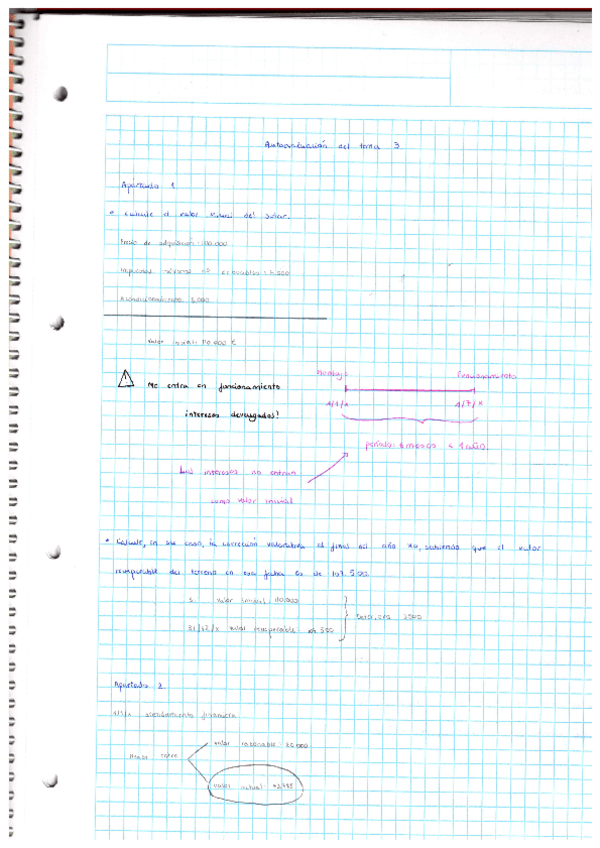 Autoevaluación del tema 3
Apartado 1
• Calcule el valor inicial del solar.
Precio de adquisición: 100.000
Impuestos no recuperables: 5.000
Acondicionamiento 5.000
Valor inicial: 110.000 €
Montaje Funcionamiento
No entra en funcionamiento
intereses devengados!
1/1/x 1/7/x
período: 6 meses < 1 año.
Los intereses no entran
como valor inicial
• Calcule, en su caso, la corrección valorativa al final del año x0, sabiendo que el valor
recuperable del terreno en esa fecha es de 107.500
valor inicial 110.000
31/12/x valor recuperable 2500
Apartado 2.
1/1/x arrendamiento financiero
valor razonable
Menor entre
valor actual